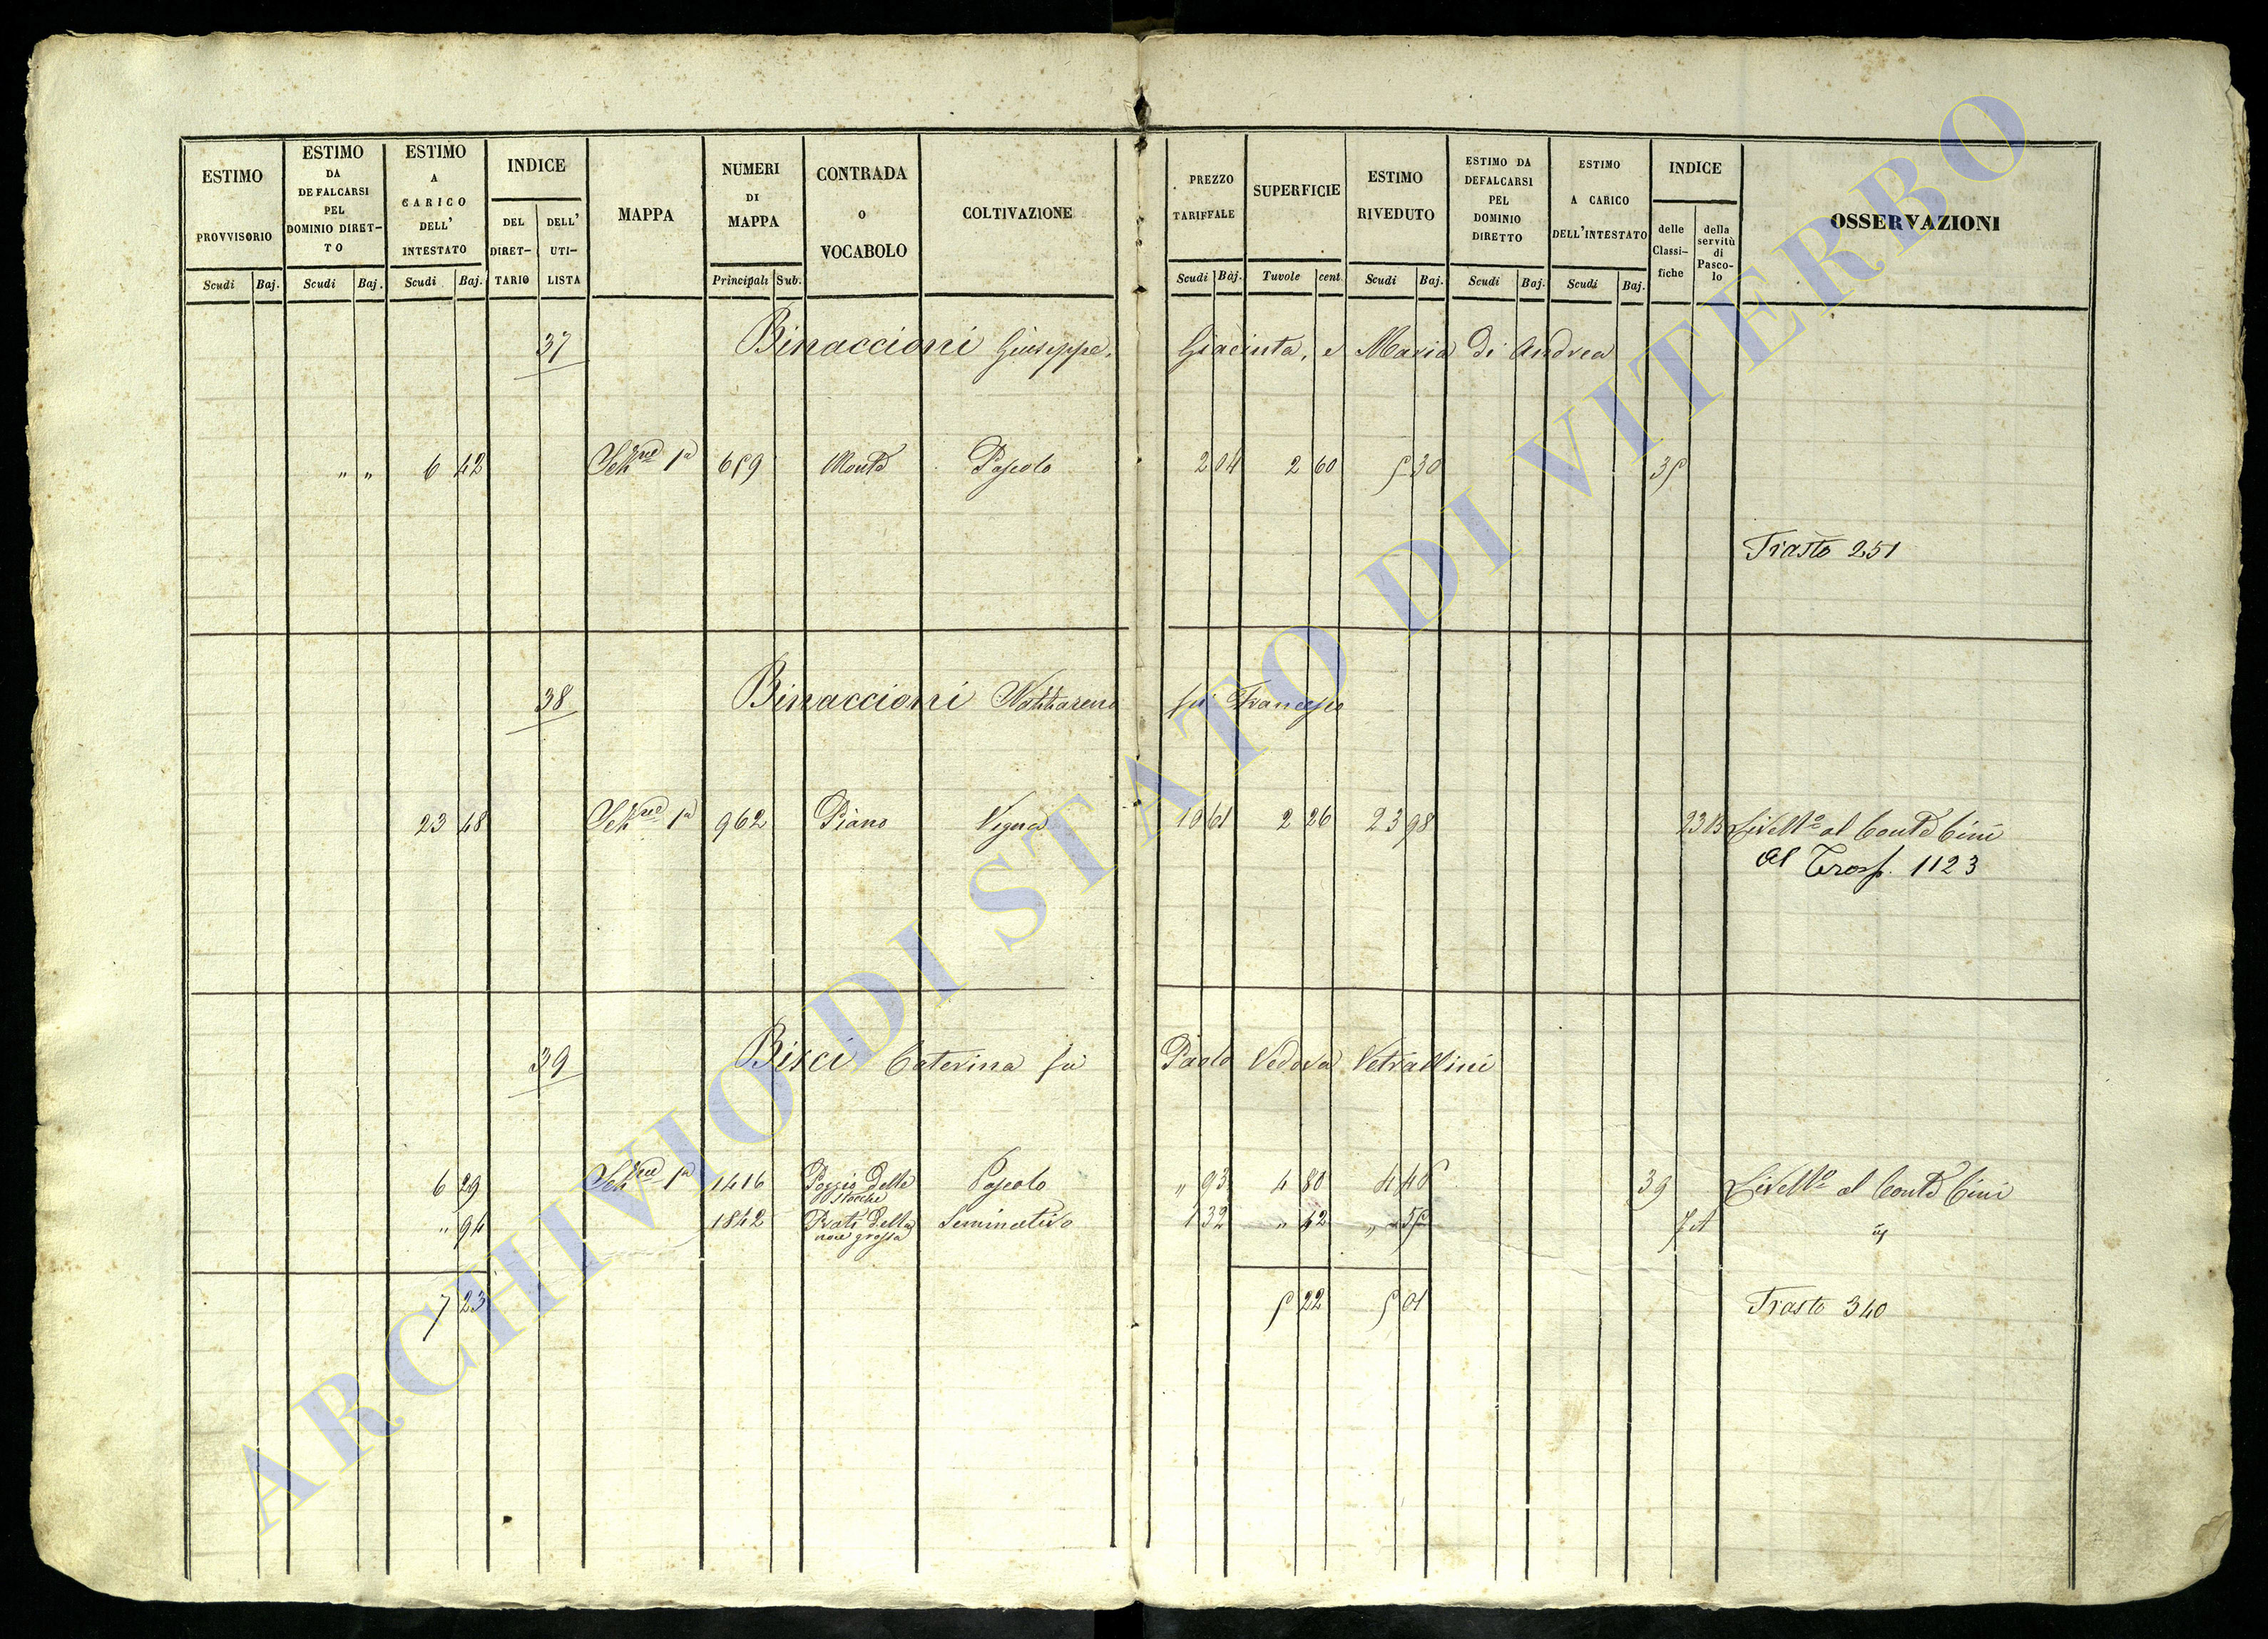 ESTIMO PROVVISORIO
Scudi Baj.
ESTIMO DA DEFALCARSI PEL DOMINIO DIRETTO
Scudi Baj.
ESTIMO A CARICO DELL' INTESTATO
Scudi Baj.
INDICE
DEL DIRETTARIO
DELL' UTILISTA
MAPPA
NUMERI DI MAPPA
Principali Sub.
CONTRADA O VOCABOLO
COLTIVAZIONE
PREZZO TARIFFALE
Scudi Baj.
SUPERFICIE
Tavole cent.
ESTIMO RIVEDUTO
Scudi Baj.
ESTIMO DA DEFALCARSI PEL DOMINIO DIRETTO
Scudi Baj.
ESTIMO A CARICO DELL'INTESTATO
Scudi Baj.
INDICE
delle Classifiche
della servitù di Pascolo
OSSERVAZIONI
37 Binaccioni Giuseppe, Giacinta, e Maria di Andrea
" " 6 42 Sez.ne 1a 659 Monte Pascolo 2 04 2 60 5 30 35
Trasto 251
38 Binaccioni Nazzareno fu Francesco
23 48 Sez.ne 1a 962 Piano Vigna 10 61 2 26 23 98 Livell.o al Conte Cini
Al Trasp. 1123
39 Bisci Caterina fu Paolo Vedova Vetrallini
6 29 Sez.ne 1a 1416 Poggio delle Stecche Pascolo " 93 4 80 4 46 39 Livell.o al Conte Cini
" 94 1842 Prati della noce grossa Seminativo 1 32 " 42 " 55
7 23 5 22 5 01 Trasto 340
ARCHIVIO DI STATO DI VITERBO